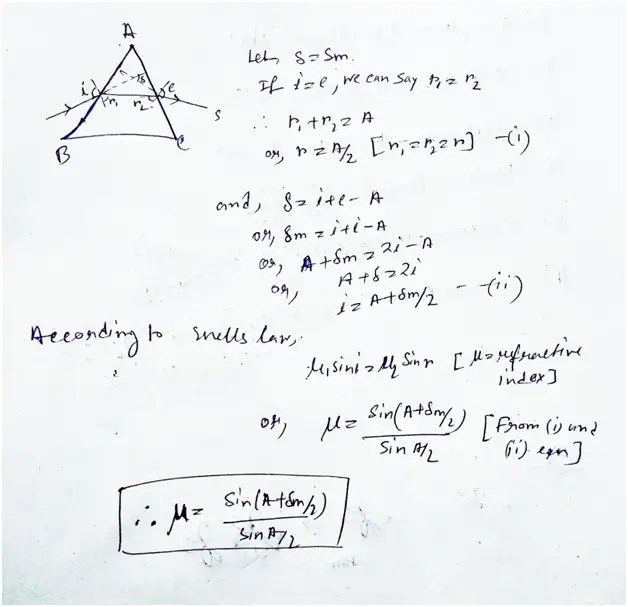 A
i
r₁
δ
r₂
e
S
B
C
Let, δ = δm.
If i = e, we can say r₁ = r₂
∴ r₁ + r₂ = A
or, r = A/2 [r₁ = r₂ = r] -(i)
and, δ = i + e - A
or, δm = i + i - A
or, A + δm = 2i - A
or, A + δ = 2i
i = A + δm/2 - -(ii)
According to snells law,
μ₁ sin i = μ₂ sin r [μ = refractive
index]
or, μ = sin(A + δm/2) / sin A/2 [From (i) and
(ii) eqn]
∴ μ = sin(A + δm/2) / sin A/2